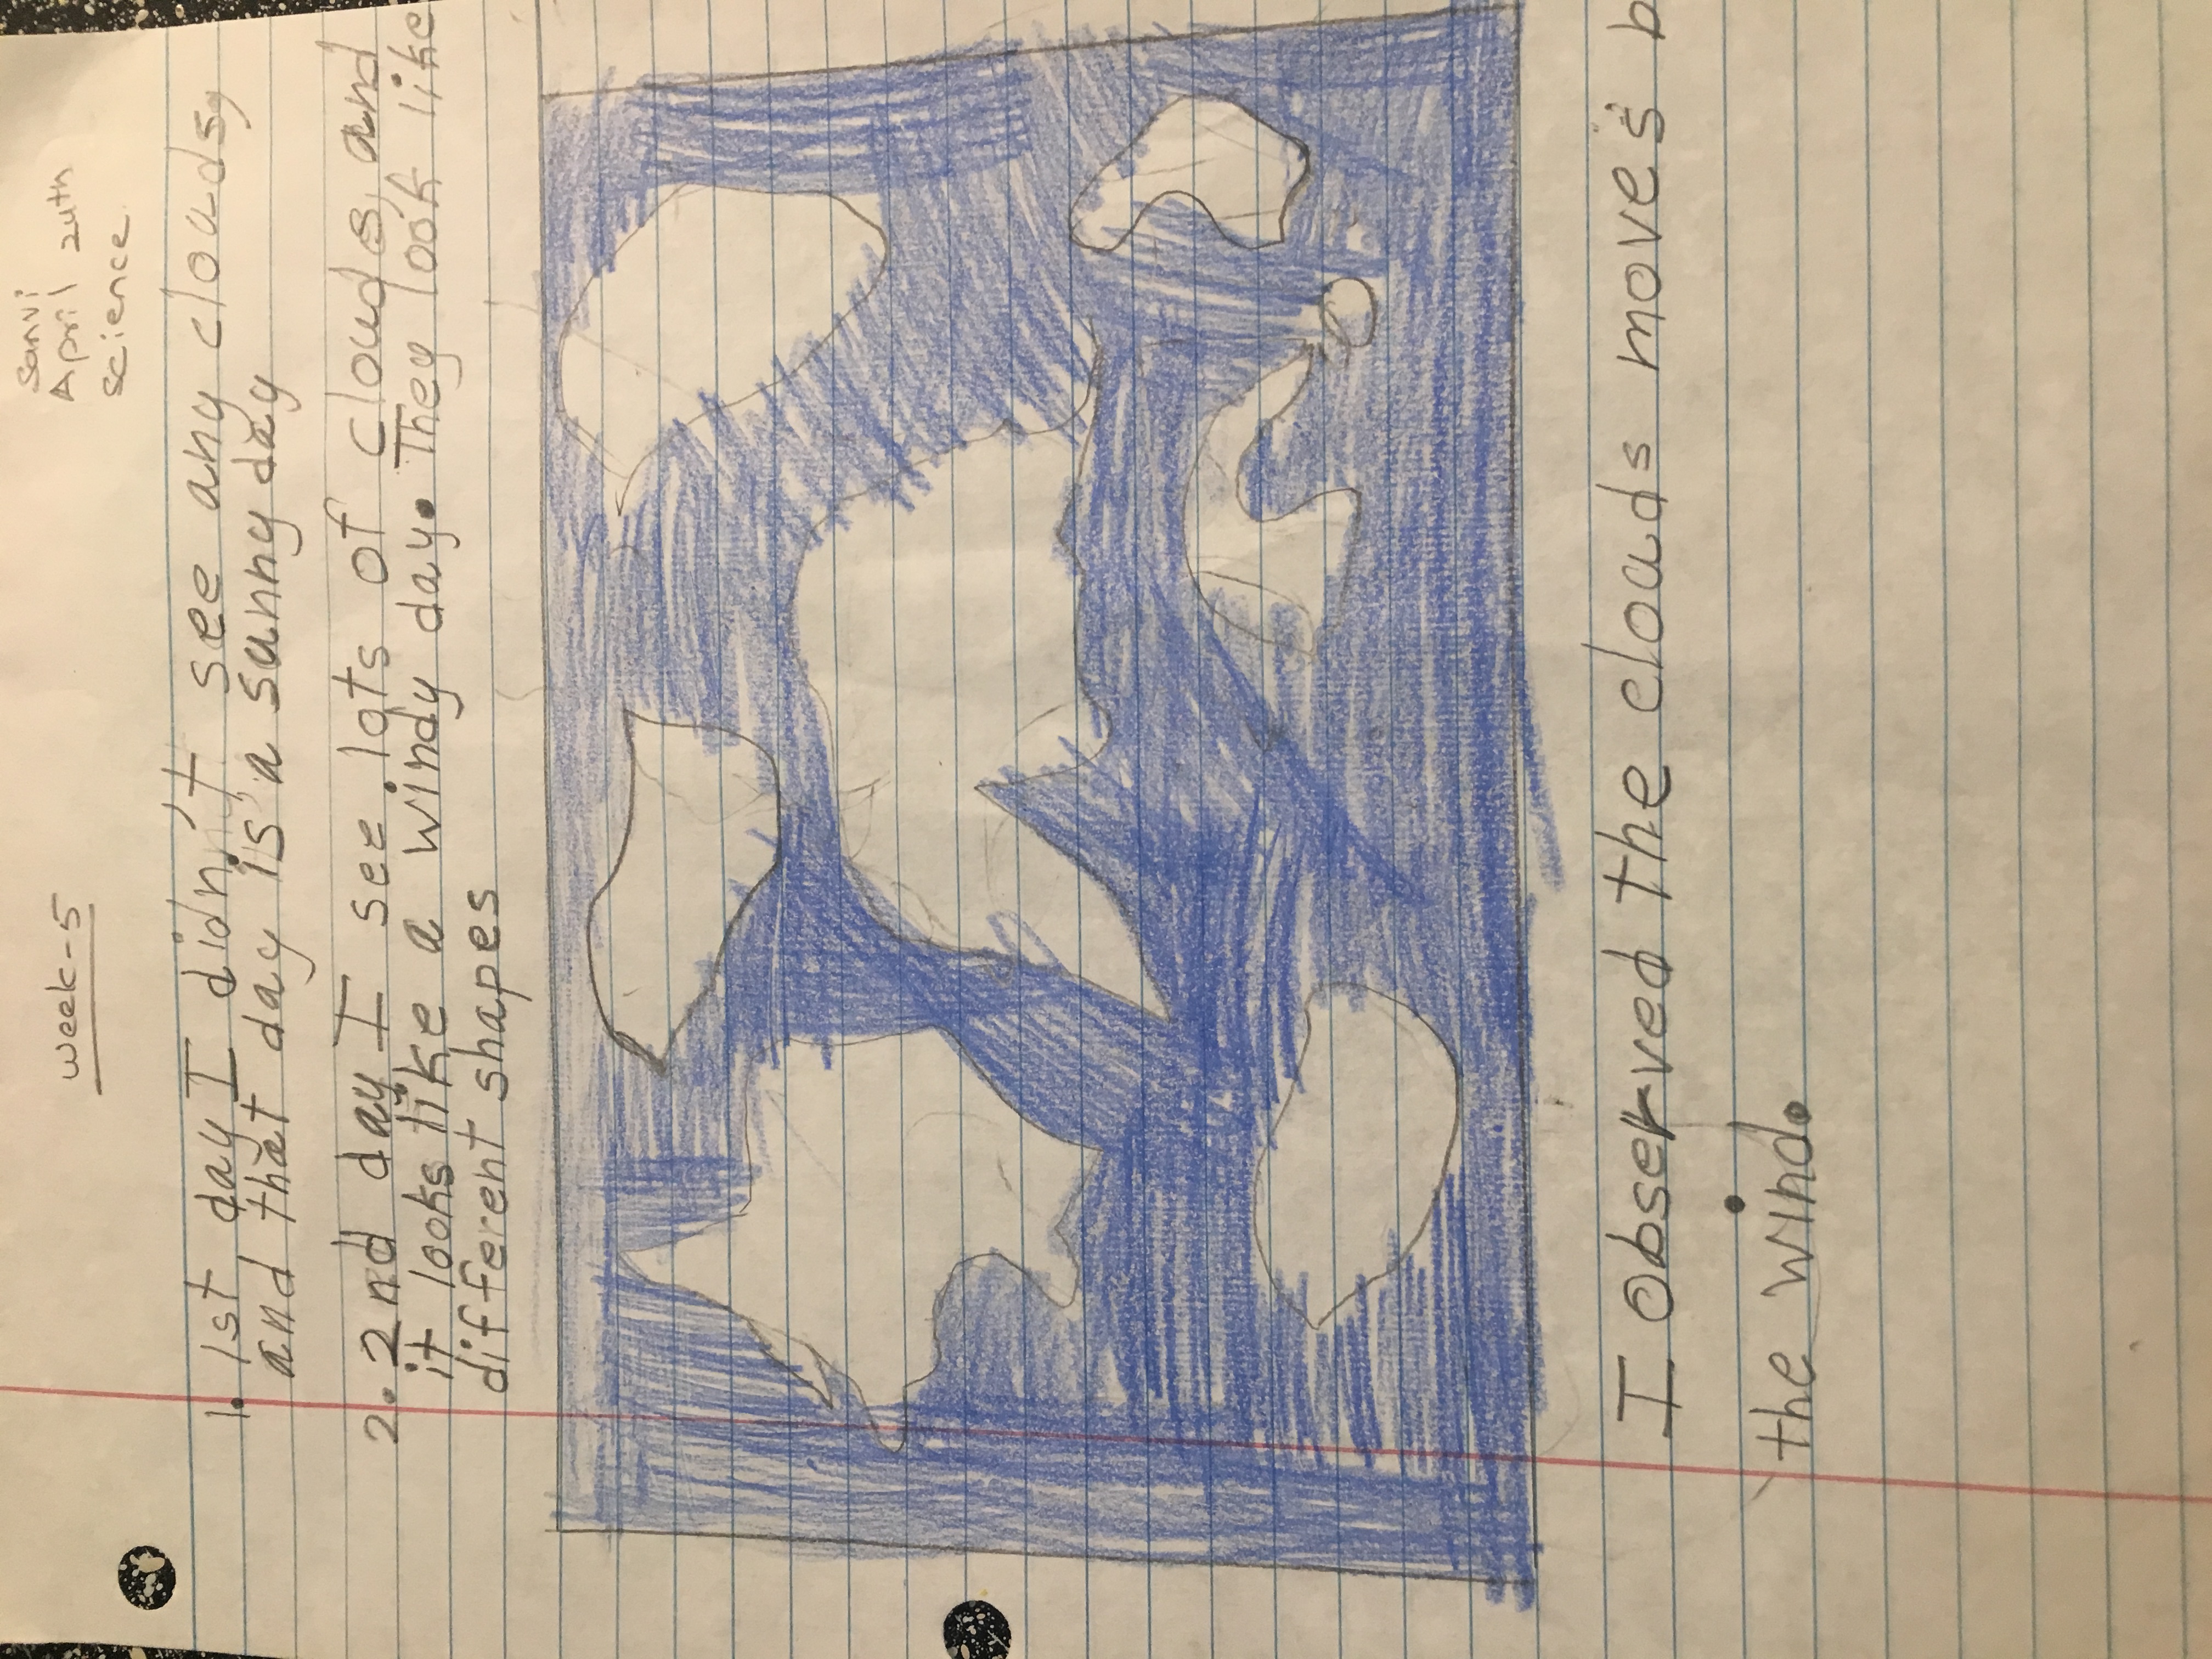 week-5
Sanvi
April 24th
science
1. 1st day I didn't see any clouds,
and that day is a sunny day
2. 2nd day I see lots of clouds, and
it looks like a windy day. They look like
different shapes
I observed the clouds moves b
the wind.